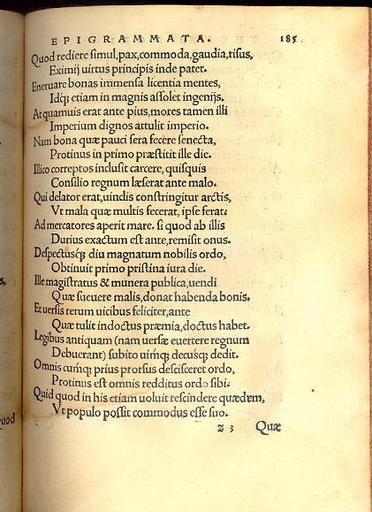 EPIGRAMMATA. 185.
Quod rediere simul, pax, commoda, gaudia, risus,
Eximij uirtus principis inde patet.
Eneruare bonas immensa licentia mentes,
Idq; etiam in magnis assolet ingenijs.
At quamuis erat ante pius, mores tamen illi
Imperium dignos attulit imperio.
Nam bona quæ pauci sera fecere senecta,
Protinus in primo præstitit ille die.
Illico correptos inclusit carcere, quisquis
Consilio regnum læserat ante malo.
Qui delator erat, uindis constringitur arctis,
Vt mala quæ multis fecerat, ipse ferat.
Ad mercatores aperit mare. si quod ab illis
Durius exactum est ante, remisit onus.
Despectusq; diu magnatum nobilis ordo,
Obtinuit primo pristina iura die.
Ille magistratus & munera publica, uendi
Quæ sueuere malis, donat habenda bonis,
Et uersis rerum uicibus feliciter, ante
Quæ tulit indoctus præmia, doctus habet.
Legibus antiquam (nam uersæ euertere regnum
Debuerant) subito uimq; decusq; dedit.
Omnis cumq; prius prorsus descisceret ordo,
Protinus est omnis redditus ordo sibi.
Quid quod in his etiam uoluit rescindere quædam,
Vt populo possit commodus esse suo.
z 3 Quæ
s,
quod